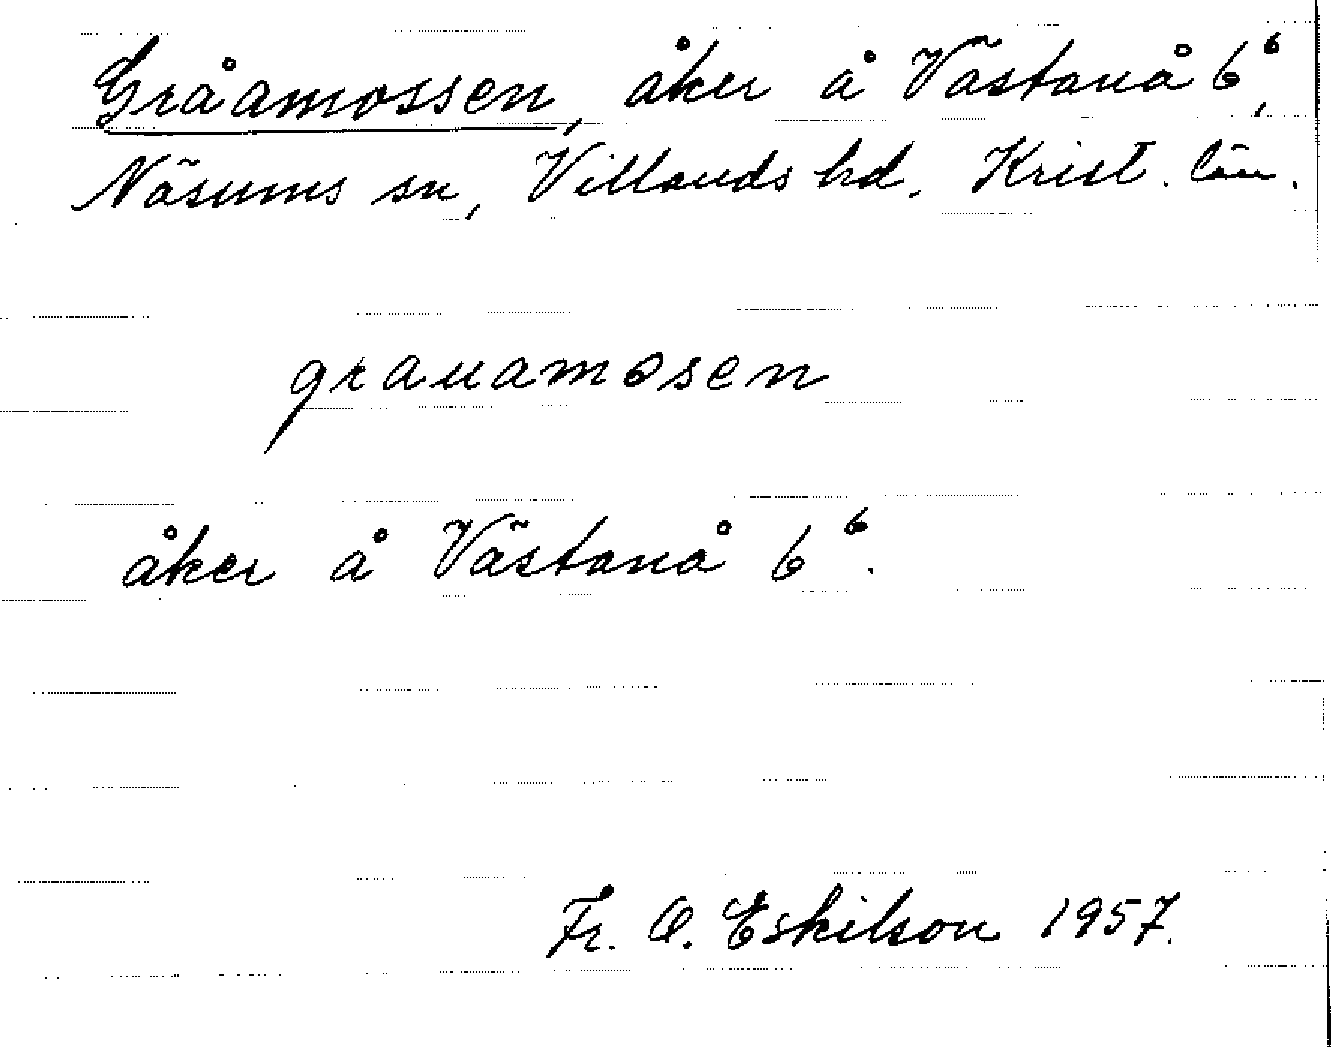 Gråamossen, åker å Västanå 6⁶,
Näsums sn, Villands hd. Krist. län.
grauamosen
åker å Västanå 6⁶.
Fr. O. Eskilson 1957.